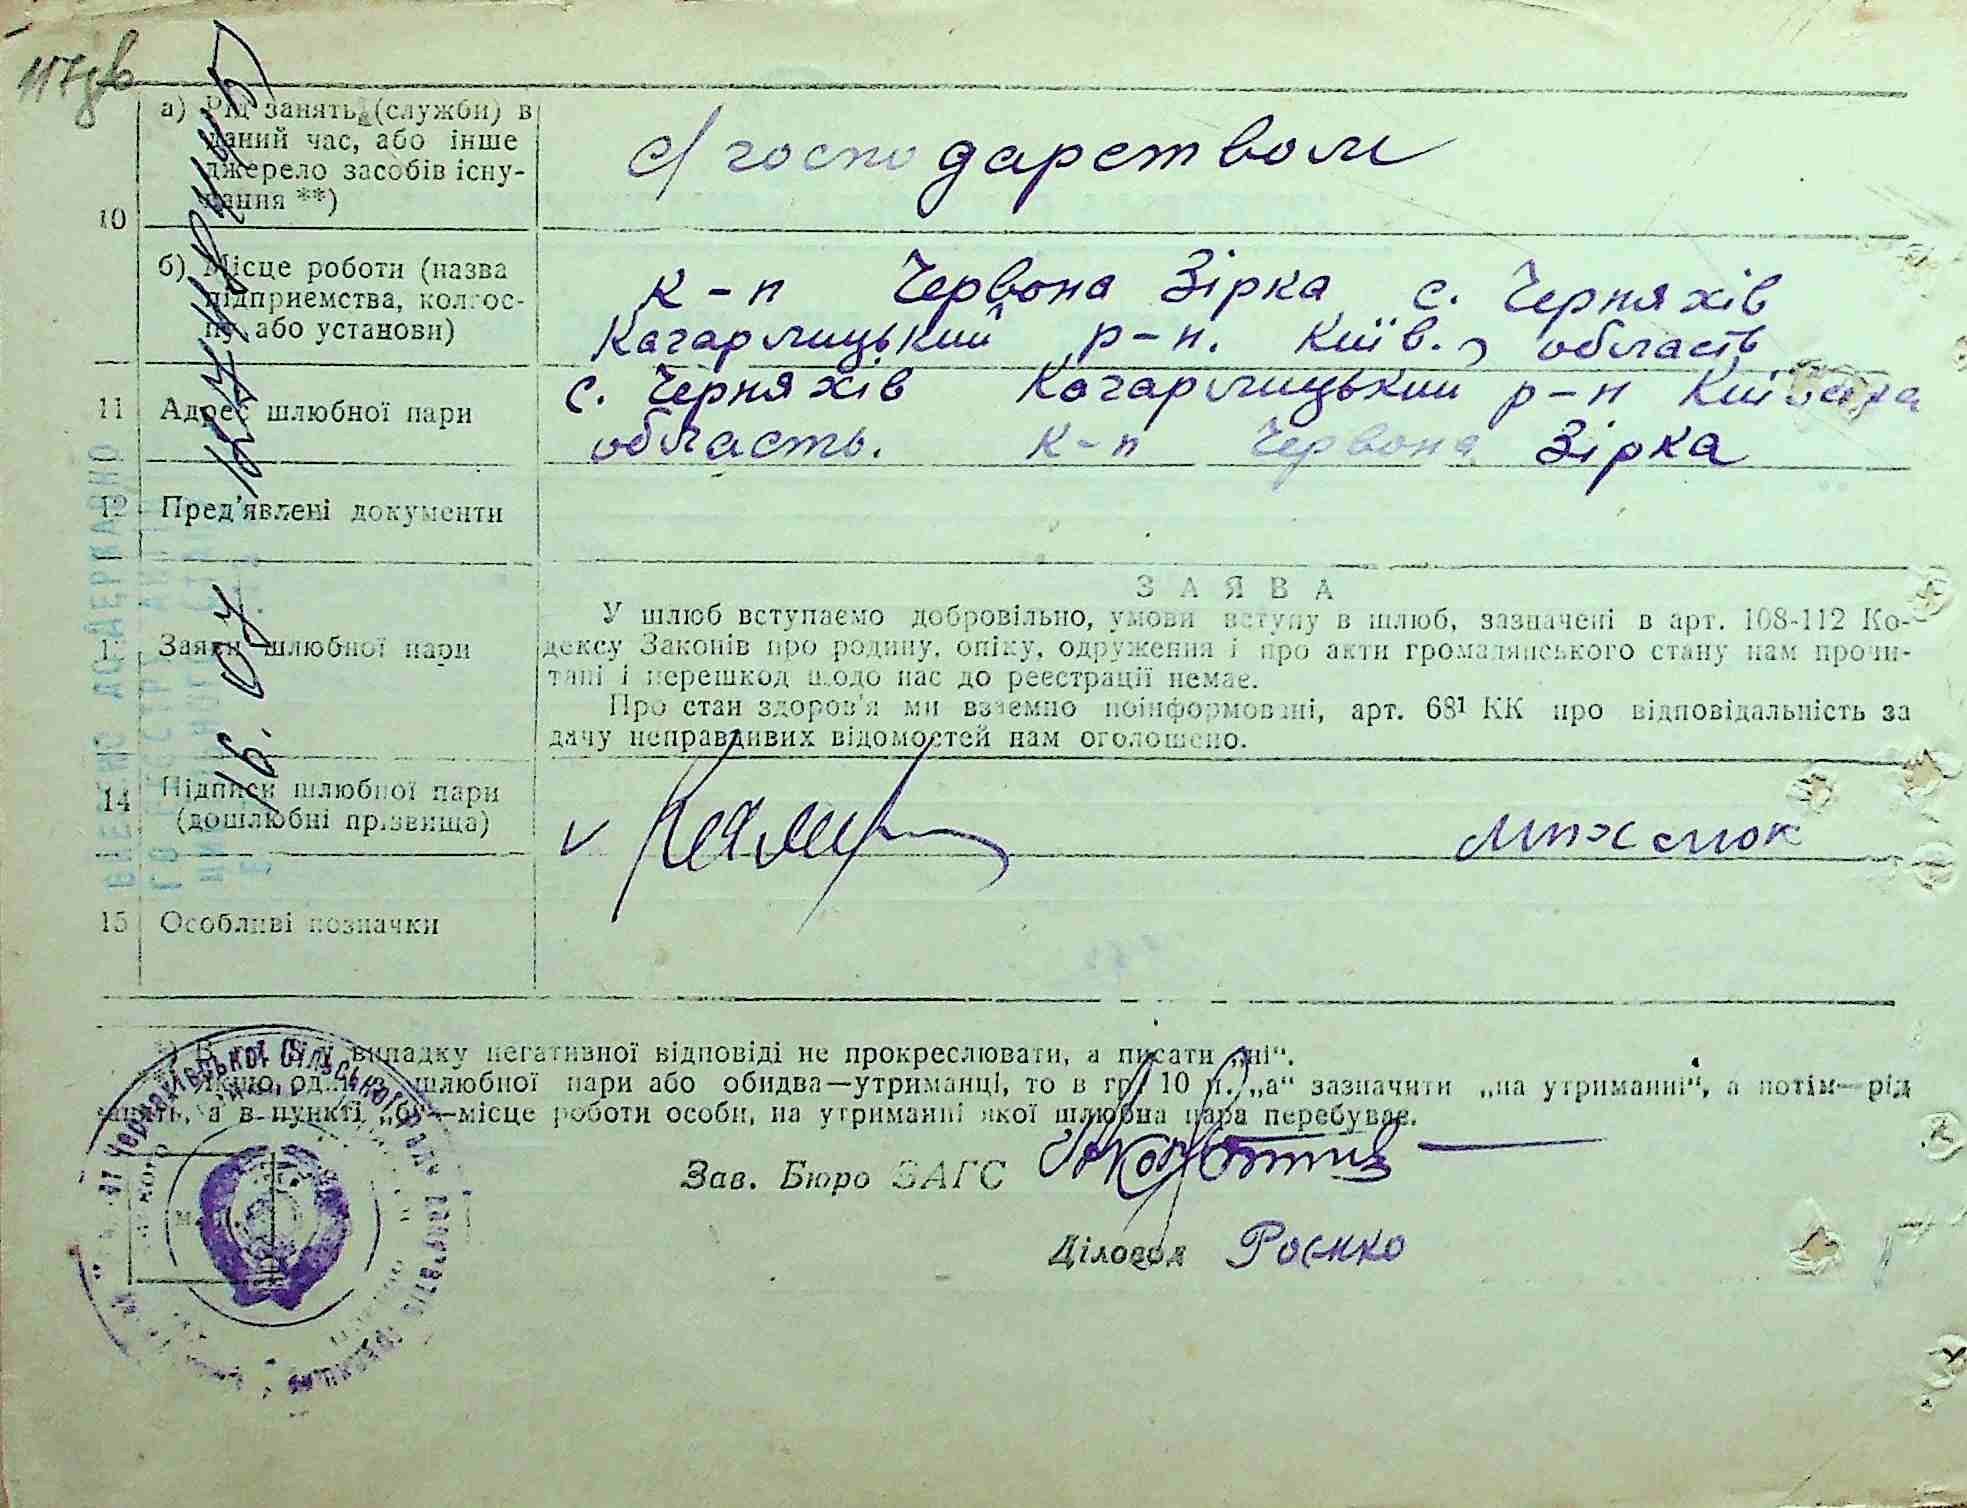 117 зв
10
а) Рід занять (служби) в
даний час, або інше
джерело засобів існу-
вання **)
с/господарством
б) Місце роботи (назва
підприємства, колгос-
пу або установи)
к-п Червона Зірка с. Черняхів
Кагарлицький р-н. Київ. область
11
Адрес шлюбної пари
с. Черняхів Кагарлицький р-н Київська
область. к-п Червона Зірка
12
Пред'явлені документи
Заяви шлюбної пари
ЗАЯВА
У шлюб вступаємо добровільно, умови вступу в шлюб, зазначені в арт. 108-112 Ко-
дексу Законів про родину, опіку, одруження і про акти громадянського стану нам прочи-
тані і перешкод щодо нас до реєстрації немає.
Про стан здоров'я ми взаємно поінформовані, арт. 68¹ КК про відповідальність за
дачу неправдивих відомостей нам оголошено.
14
Підписи шлюбної пари
(дошлюбні прізвища)
15
Особливі позначки
у випадку негативної відповіді не прокреслювати, а писати „ні“.
Якщо один з шлюбної пари або обидва—утриманці, то в гр. 10 п. „а“ зазначити „на утриманні“, а потім—рід
занять, а в пункті „б“—місце роботи особи, на утриманні якої шлюбна пара перебуває.
Зав. Бюро ЗАГС
Діловод
16. 07